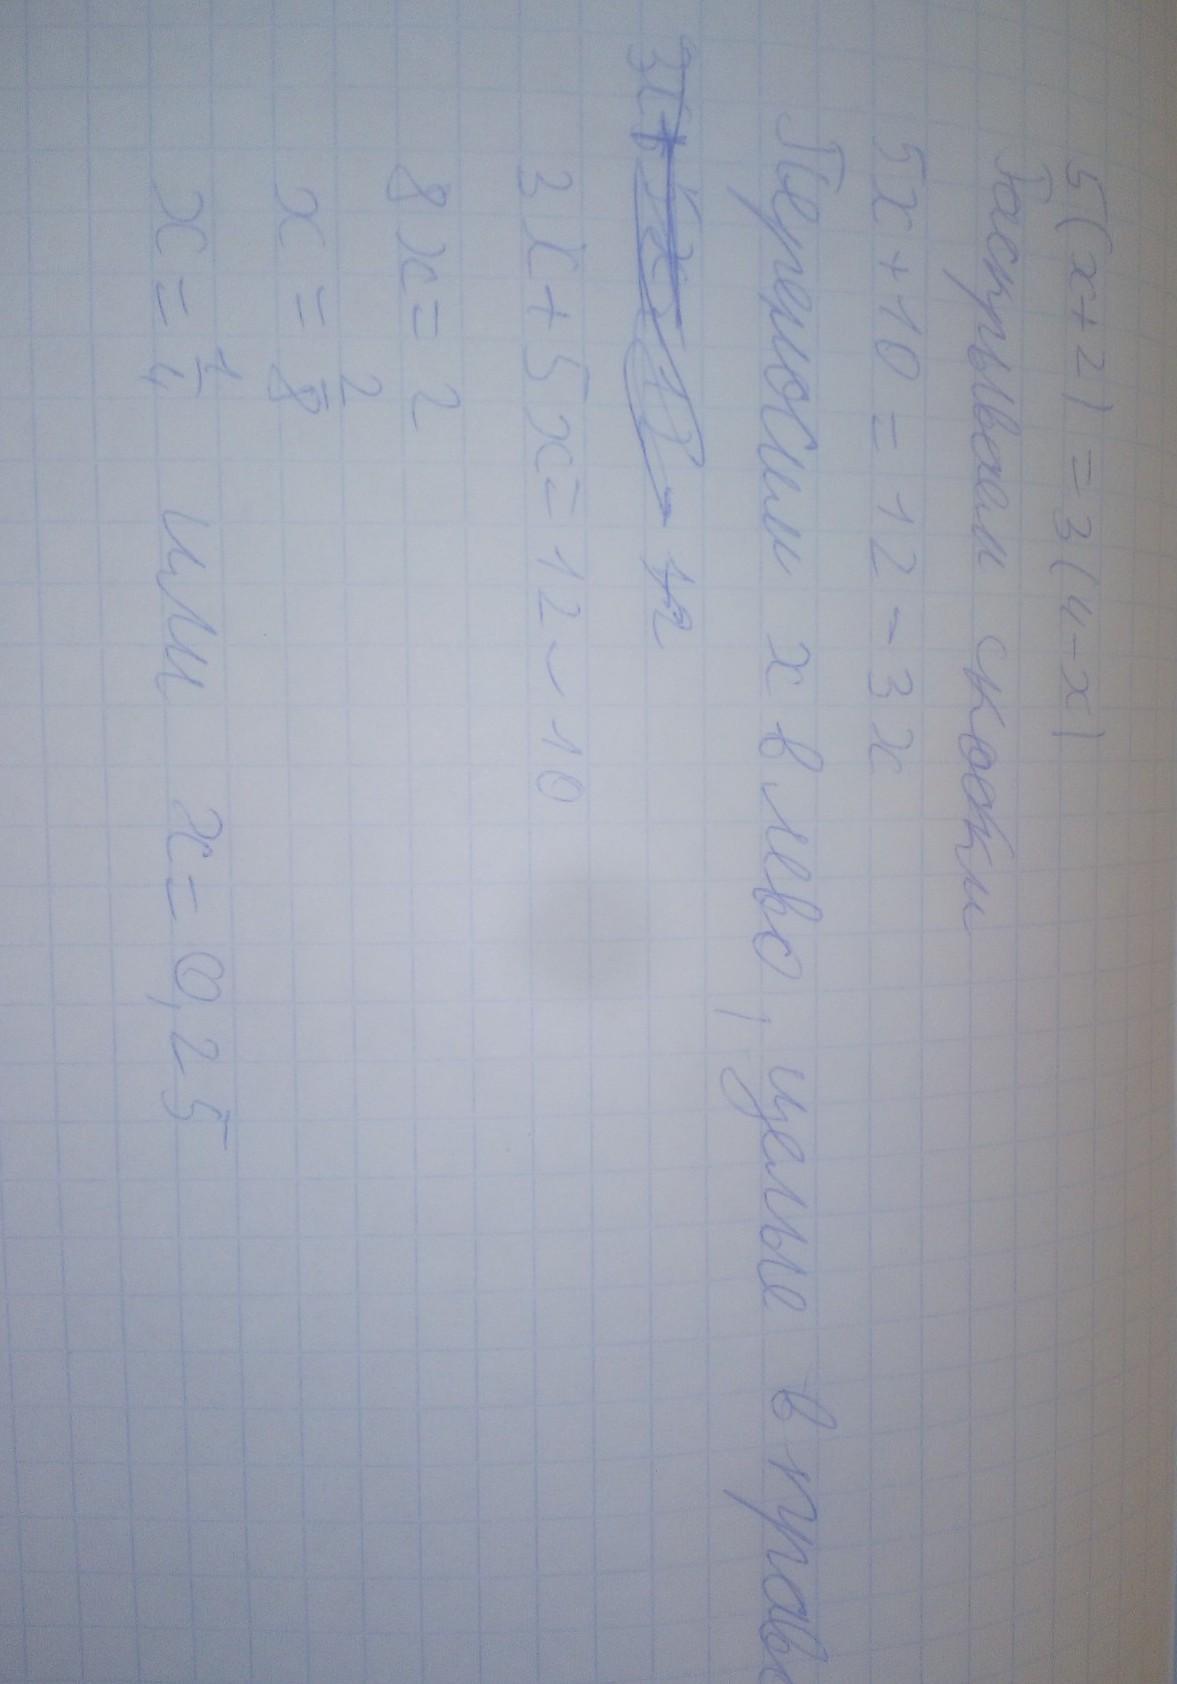 5(x+2)=3(4-x)
Раскрываем скобки
5x+10=12-3x
Переносим x в лево, целые в право
3x+5x=12-10
8x=2
x=2/8
x=1/4 или x=0,25